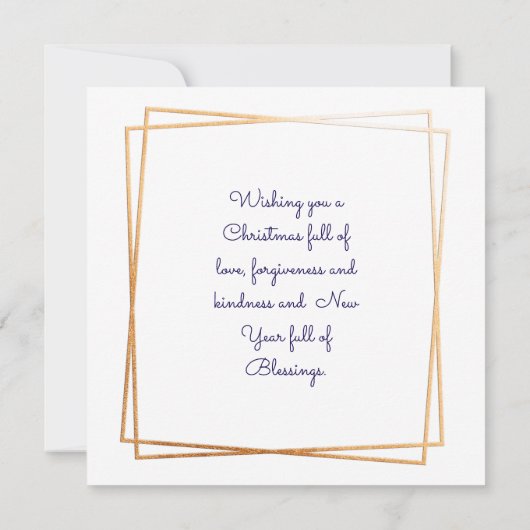 Wishing you a
Christmas full of
love, forgiveness and
kindness and  New
Year full of
Blessings.